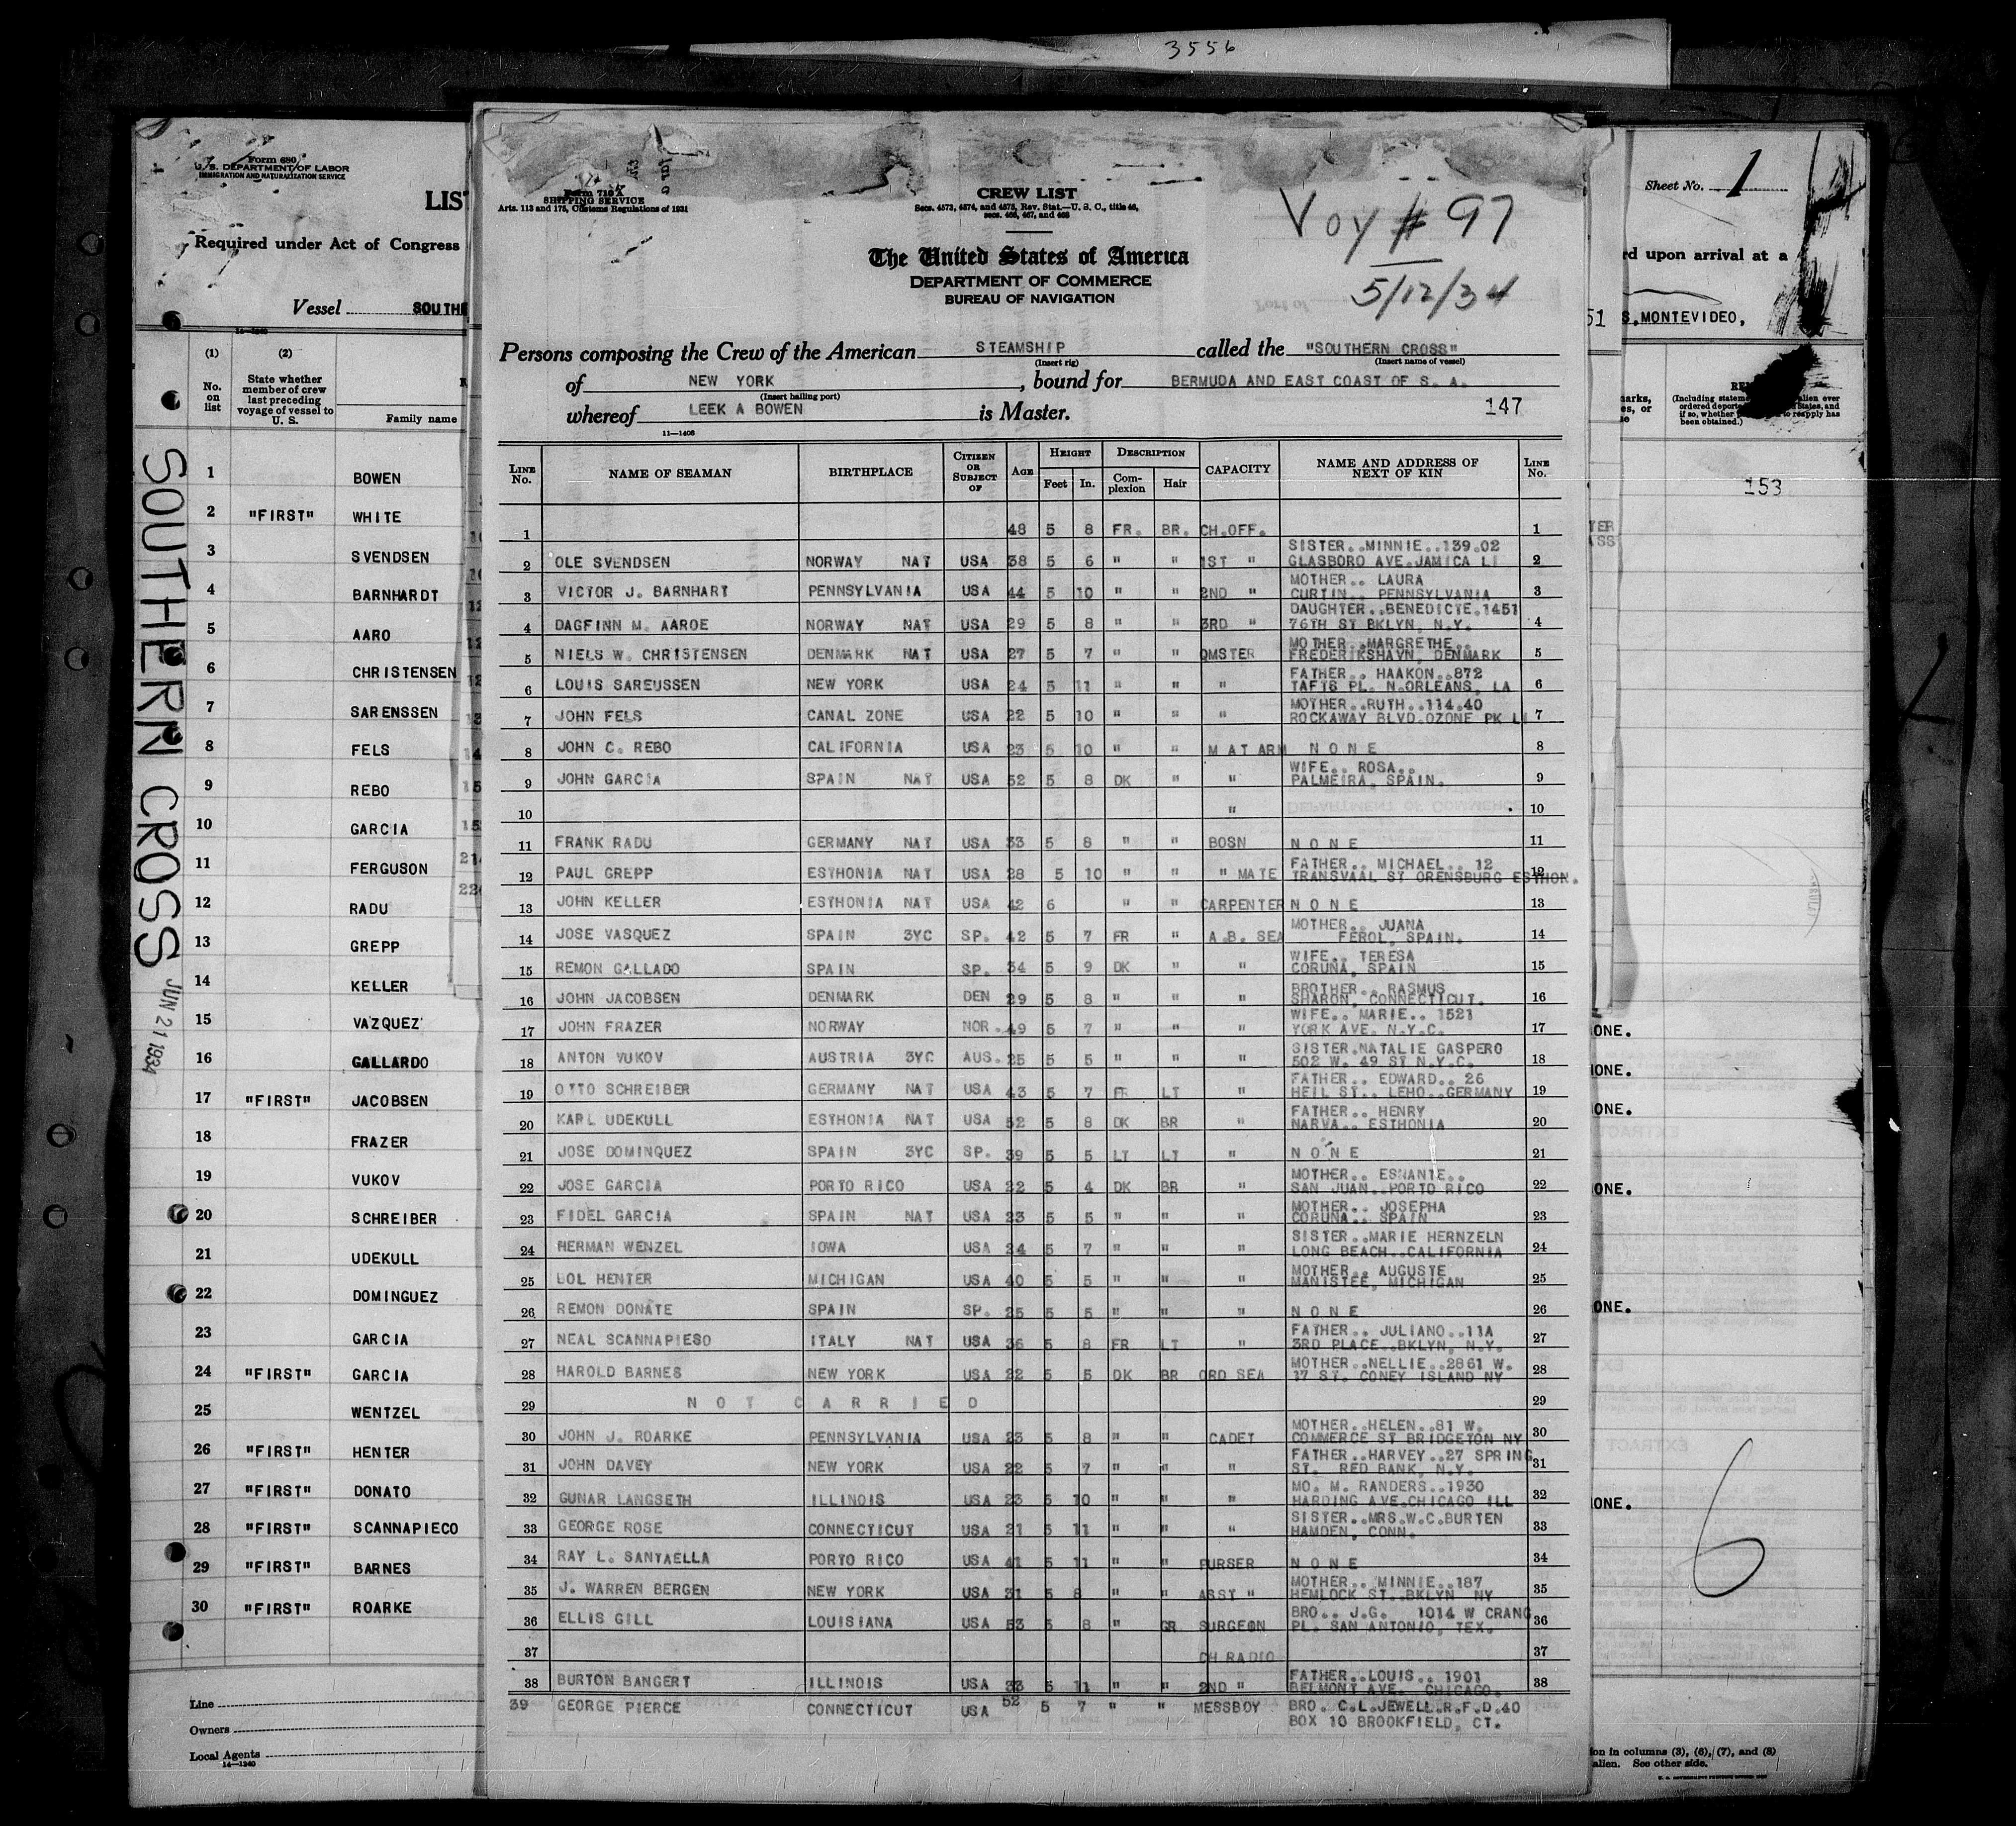 3556
Form 680
U. S. DEPARTMENT OF LABOR
IMMIGRATION AND NATURALIZATION SERVICE
LIST
Required under Act of Congress
Vessel SOUTHE
14—1240
(1) (2)
No. on list
State whether member of crew last preceding voyage of vessel to U. S.
Family name
1 BOWEN
2 "FIRST" WHITE
3 SVENDSEN
4 BARNHARDT
5 AARO
6 CHRISTENSEN
7 SARENSSEN
8 FELS
9 REBO
10 GARCIA
11 FERGUSON
12 RADU
13 GREPP
14 KELLER
15 VAZQUEZ
16 GALLARDO
17 "FIRST" JACOBSEN
18 FRAZER
19 VUKOV
20 SCHREIBER
21 UDEKULL
22 DOMINGUEZ
23 GARCIA
24 "FIRST" GARCIA
25 WENTZEL
26 "FIRST" HENTER
27 "FIRST" DONATO
28 "FIRST" SCANNAPIECO
29 "FIRST" BARNES
30 "FIRST" ROARKE
Line
Owners
Local Agents
14—1240
SOUTHERN CROSS
JUN 21 1934
Form 710 A
SHIPPING SERVICE
Arts. 113 and 175, Customs Regulations of 1931
CREW LIST
Secs. 4573, 4574, and 4575, Rev. Stat.—U. S. C., title 46,
secs. 466, 467, and 468
The United States of America
DEPARTMENT OF COMMERCE
BUREAU OF NAVIGATION
Voy # 97
5/12/34
Persons composing the Crew of the American STEAMSHIP called the "SOUTHERN CROSS"
(Insert rig) (Insert name of vessel)
of NEW YORK, bound for BERMUDA AND EAST COAST OF S. A.
(Insert hailing port)
whereof LEEK A BOWEN is Master. 147
11—1408
LINE No. NAME OF SEAMAN BIRTHPLACE CITIZEN OR SUBJECT OF AGE HEIGHT Feet In. DESCRIPTION Complexion Hair CAPACITY NAME AND ADDRESS OF NEXT OF KIN LINE No.
1 48 5 8 FR. BR. CH.OFF. 1
SISTER..MINNIE..139.02
2 OLE SVENDSEN NORWAY NAT USA 38 5 6 " " 1ST " GLASBORO AVE.JAMICA LI 2
MOTHER.. LAURA
3 VICTOR J. BARNHART PENNSYLVANIA USA 44 5 10 " " 2ND " CURTIN.. PENNSYLVANIA 3
DAUGHTER..BENEDICTE.1451
4 DAGFINN M. AAROE NORWAY NAT USA 29 5 8 " " 3RD " 76TH ST BKLYN, N.Y. 4
MOTHER..MARGRETHE..
5 NIELS W. CHRISTENSEN DENMARK NAT USA 27 5 7 " " QMSTER FREDERIKSHAVN, DENMARK 5
FATHER.. HAAKON..872
6 LOUIS SAREUSSEN NEW YORK USA 24 5 11 " " " TAFTS PL. N.ORLEANS, LA 6
MOTHER..RUTH..114.40
7 JOHN FELS CANAL ZONE USA 22 5 10 " " " ROCKAWAY BLVD.OZONE PK LI 7
8 JOHN C. REBO CALIFORNIA USA 23 5 10 " " M AT ARM N O N E 8
WIFE.. ROSA..
9 JOHN GARCIA SPAIN NAT USA 52 5 8 DK " " PALMEIRA, SPAIN. 9
10 " 10
11 FRANK RADU GERMANY NAT USA 33 5 8 " " BOSN N O N E 11
FATHER.. MICHAEL.. 12
12 PAUL GREPP ESTHONIA NAT USA 28 5 10 " " " MATE TRANSVAAL ST ORENSBURG ESTHON. 12
13 JOHN KELLER ESTHONIA NAT USA 42 6 " " CARPENTER N O N E 13
MOTHER.. JUANA
14 JOSE VASQUEZ SPAIN 3YC SP. 42 5 7 FR " A.B. SEA FEROL, SPAIN. 14
WIFE.. TERESA
15 REMON GALLADO SPAIN SP. 34 5 9 DK " " CORUNA, SPAIN 15
BROTHER.. RASMUS
16 JOHN JACOBSEN DENMARK DEN 29 5 8 " " " SHARON, CONNECTICUT. 16
WIFE.. MARIE.. 1521
17 JOHN FRAZER NORWAY NOR. 49 5 7 " " " YORK AVE. N.Y.C. 17
SISTER.NATALIE GASPERO
18 ANTON VUKOV AUSTRIA 3YC AUS. 25 5 5 " " " 502 W. 49 ST N.Y.C. 18
FATHER.. EDWARD.. 26
19 OTTO SCHREIBER GERMANY NAT USA 43 5 7 FR LT " HEIL ST.. LEHO..GERMANY 19
FATHER.. HENRY
20 KARL UDEKULL ESTHONIA NAT USA 52 5 8 DK BR " NARVA.. ESTHONIA 20
21 JOSE DOMINQUEZ SPAIN 3YC SP. 39 5 5 LT LT " N O N E 21
MOTHER.. ESNANTE..
22 JOSE GARCIA PORTO RICO USA 22 5 4 DK BR " SAN JUAN..PORTO RICO 22
MOTHER.. JOSEPHA
23 FIDEL GARCIA SPAIN NAT USA 23 5 5 " " " CORUNA.. SPAIN 23
SISTER..MARIE HERNZELN
24 HERMAN WENZEL IOWA USA 24 5 7 " " " LONG BEACH..CALIFORNIA 24
MOTHER.. AUGUSTE
25 LOL HENTER MICHIGAN USA 40 5 5 " " " MANISTEE, MICHIGAN 25
26 REMON DONATE SPAIN SP. 25 5 5 " " " N O N E 26
FATHER.. JULIANO..11A
27 NEAL SCANNAPIESO ITALY NAT USA 36 5 8 FR LT " 3RD PLACE..BKLYN, N.Y. 27
MOTHER..NELLIE..2861 W.
28 HAROLD BARNES NEW YORK USA 22 5 5 DK BR ORD SEA 17 ST. CONEY ISLAND NY 28
29 N O T C A R R I E D 29
MOTHER..HELEN..81 W.
30 JOHN J. ROARKE PENNSYLVANIA USA 23 5 8 " " CADET COMMERCE ST BRIDGETON NY 30
FATHER..HARVEY..27 SPRING
31 JOHN DAVEY NEW YORK USA 22 5 7 " " " ST. RED BANK, N.Y. 31
MO. M. RANDERS..1930
32 GUNAR LANGSETH ILLINOIS USA 23 5 10 " " " HARDING AVE.CHICAGO ILL 32
SISTER..MRS.W.C.BURTEN
33 GEORGE ROSE CONNECTICUT USA 21 5 11 " " " HAMDEN, CONN. 33
34 RAY L. SANTAELLA PORTO RICO USA 41 5 11 " " PURSER N O N E 34
MOTHER.. MINNIE..187
35 J. WARREN BERGEN NEW YORK USA 31 5 8 " " ASST " HEMLOCK ST..BKLYN NY 35
BRO.. J.G. 1014 W CRANG
36 ELLIS GILL LOUISIANA USA 53 5 8 " GR SURGEON PL. SAN ANTONIO, TEX. 36
37 CH RADIO 37
FATHER..LOUIS.. 1901
38 BURTON BANGERT ILLINOIS USA 33 5 11 " " 2ND " BELMONT AVE. CHICAGO. 38
39 GEORGE PIERCE CONNECTICUT USA 52 5 7 " " MESSBOY BRO. C.L.JEWELL.R.F.D.40
BOX 10 BROOKFIELD, CT.
Sheet No. 1
rd upon arrival at a
S, MONTEVIDEO,
51
153
ONE.
ONE.
ONE.
ONE.
ONE.
ONE.
6
ion in columns (3), (6), (7), and (8)
alien. See other side.